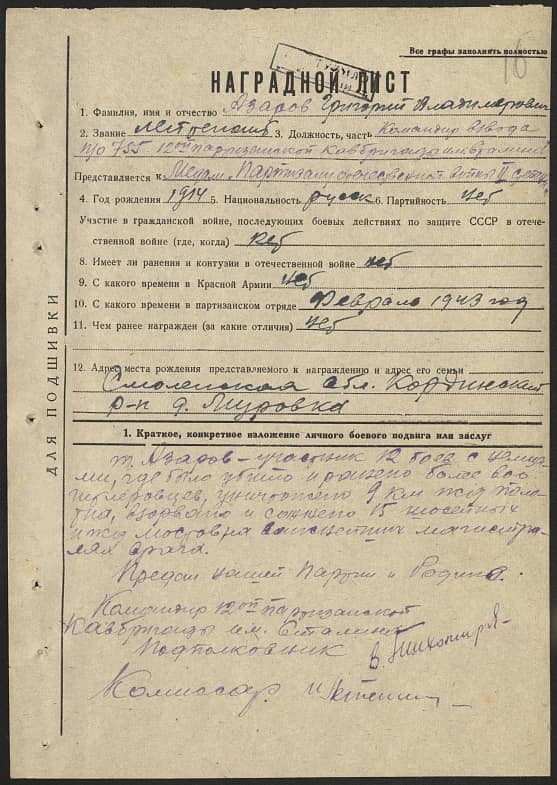 Все графы заполнять полностью
16
НАГРАДНОЙ ЛИСТ
1. Фамилия, имя и отчество Азаров Григорий Владимирович
2. Звание 3. Должность, часть Командир взвода
п/о 755 12ой партизанской Кавбригады им. Сталина
Представляется к Медали Партизану отечественной войны II степени
4. Год рождения 1914 5. Национальность русск 6. Партийность нет
Участие в гражданской войне, последующих боевых действиях по защите СССР в отече-
ственной войне (где, когда) нет
8. Имеет ли ранения и контузии в отечественной войне нет
9. С какого времени в Красной Армии нет
10. С какого времени в партизанском отряде Февраль 1943 год
11. Чем ранее награжден (за какие отличия) нет
ДЛЯ ПОДШИВКИ
12. Адрес места рождения представляемого к награждению и адрес его семьи
Смоленская обл.
р-н д. Муровка
1. Краткое, конкретное изложение личного боевого подвига или заслуг
т. Азаров – участник 12 боев с немца
ми, где было убито и ранено более 800
гитлеровцев, уничтожено 9 км ж/д полот
на, взорвано и сожжено 15 шоссейных
и ж/д мостов на магистра
лях врага.
Предан нашей Партии и Родине.
Командир 12ой партизанской
Кавбригады им. Сталина
Подполковник
Комиссар